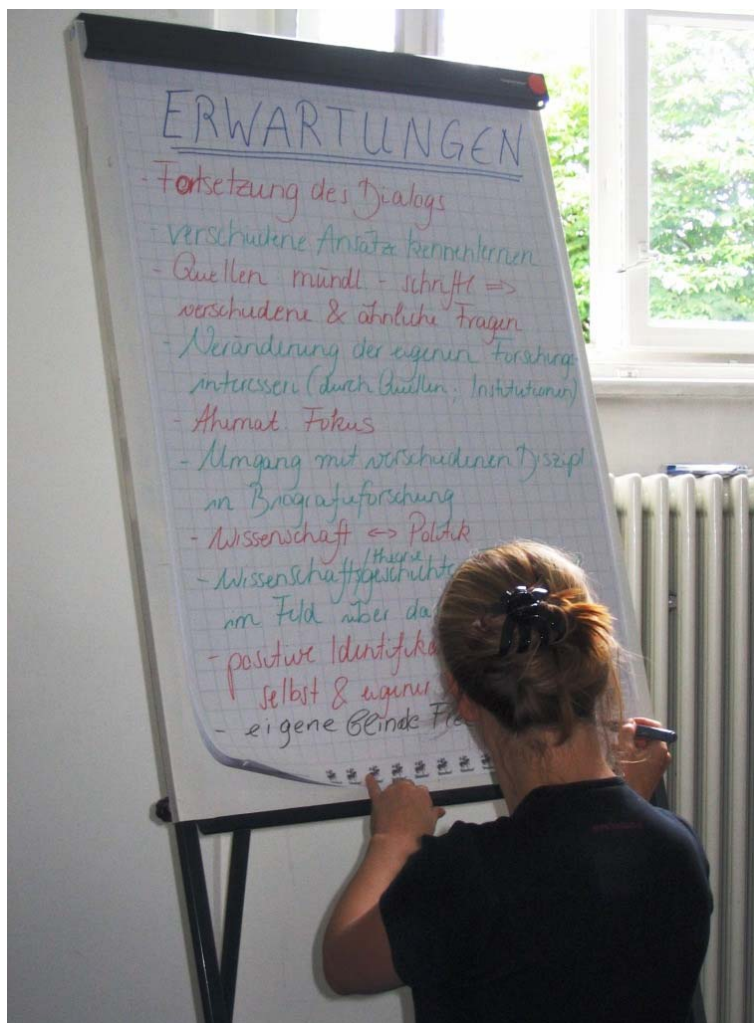 ERWARTUNGEN
- Fortsetzung des Dialogs
- verschiedene Ansätze kennenlernen
- Quellen mündl - schriftl =>
verschiedene & ähnliche Fragen
- Veränderung der eigenen Forschungs-
interessen (durch Quellen; Institutionen)
- Fokus
- Umgang mit verschiedenen Diszipl
in Biografieforschung
- Wissenschaft <-> Politik
/theorie
- Wissenschaftsgeschichte
im Feld über da
- positive Identifika
selbst & eigener
- eigene Blinde